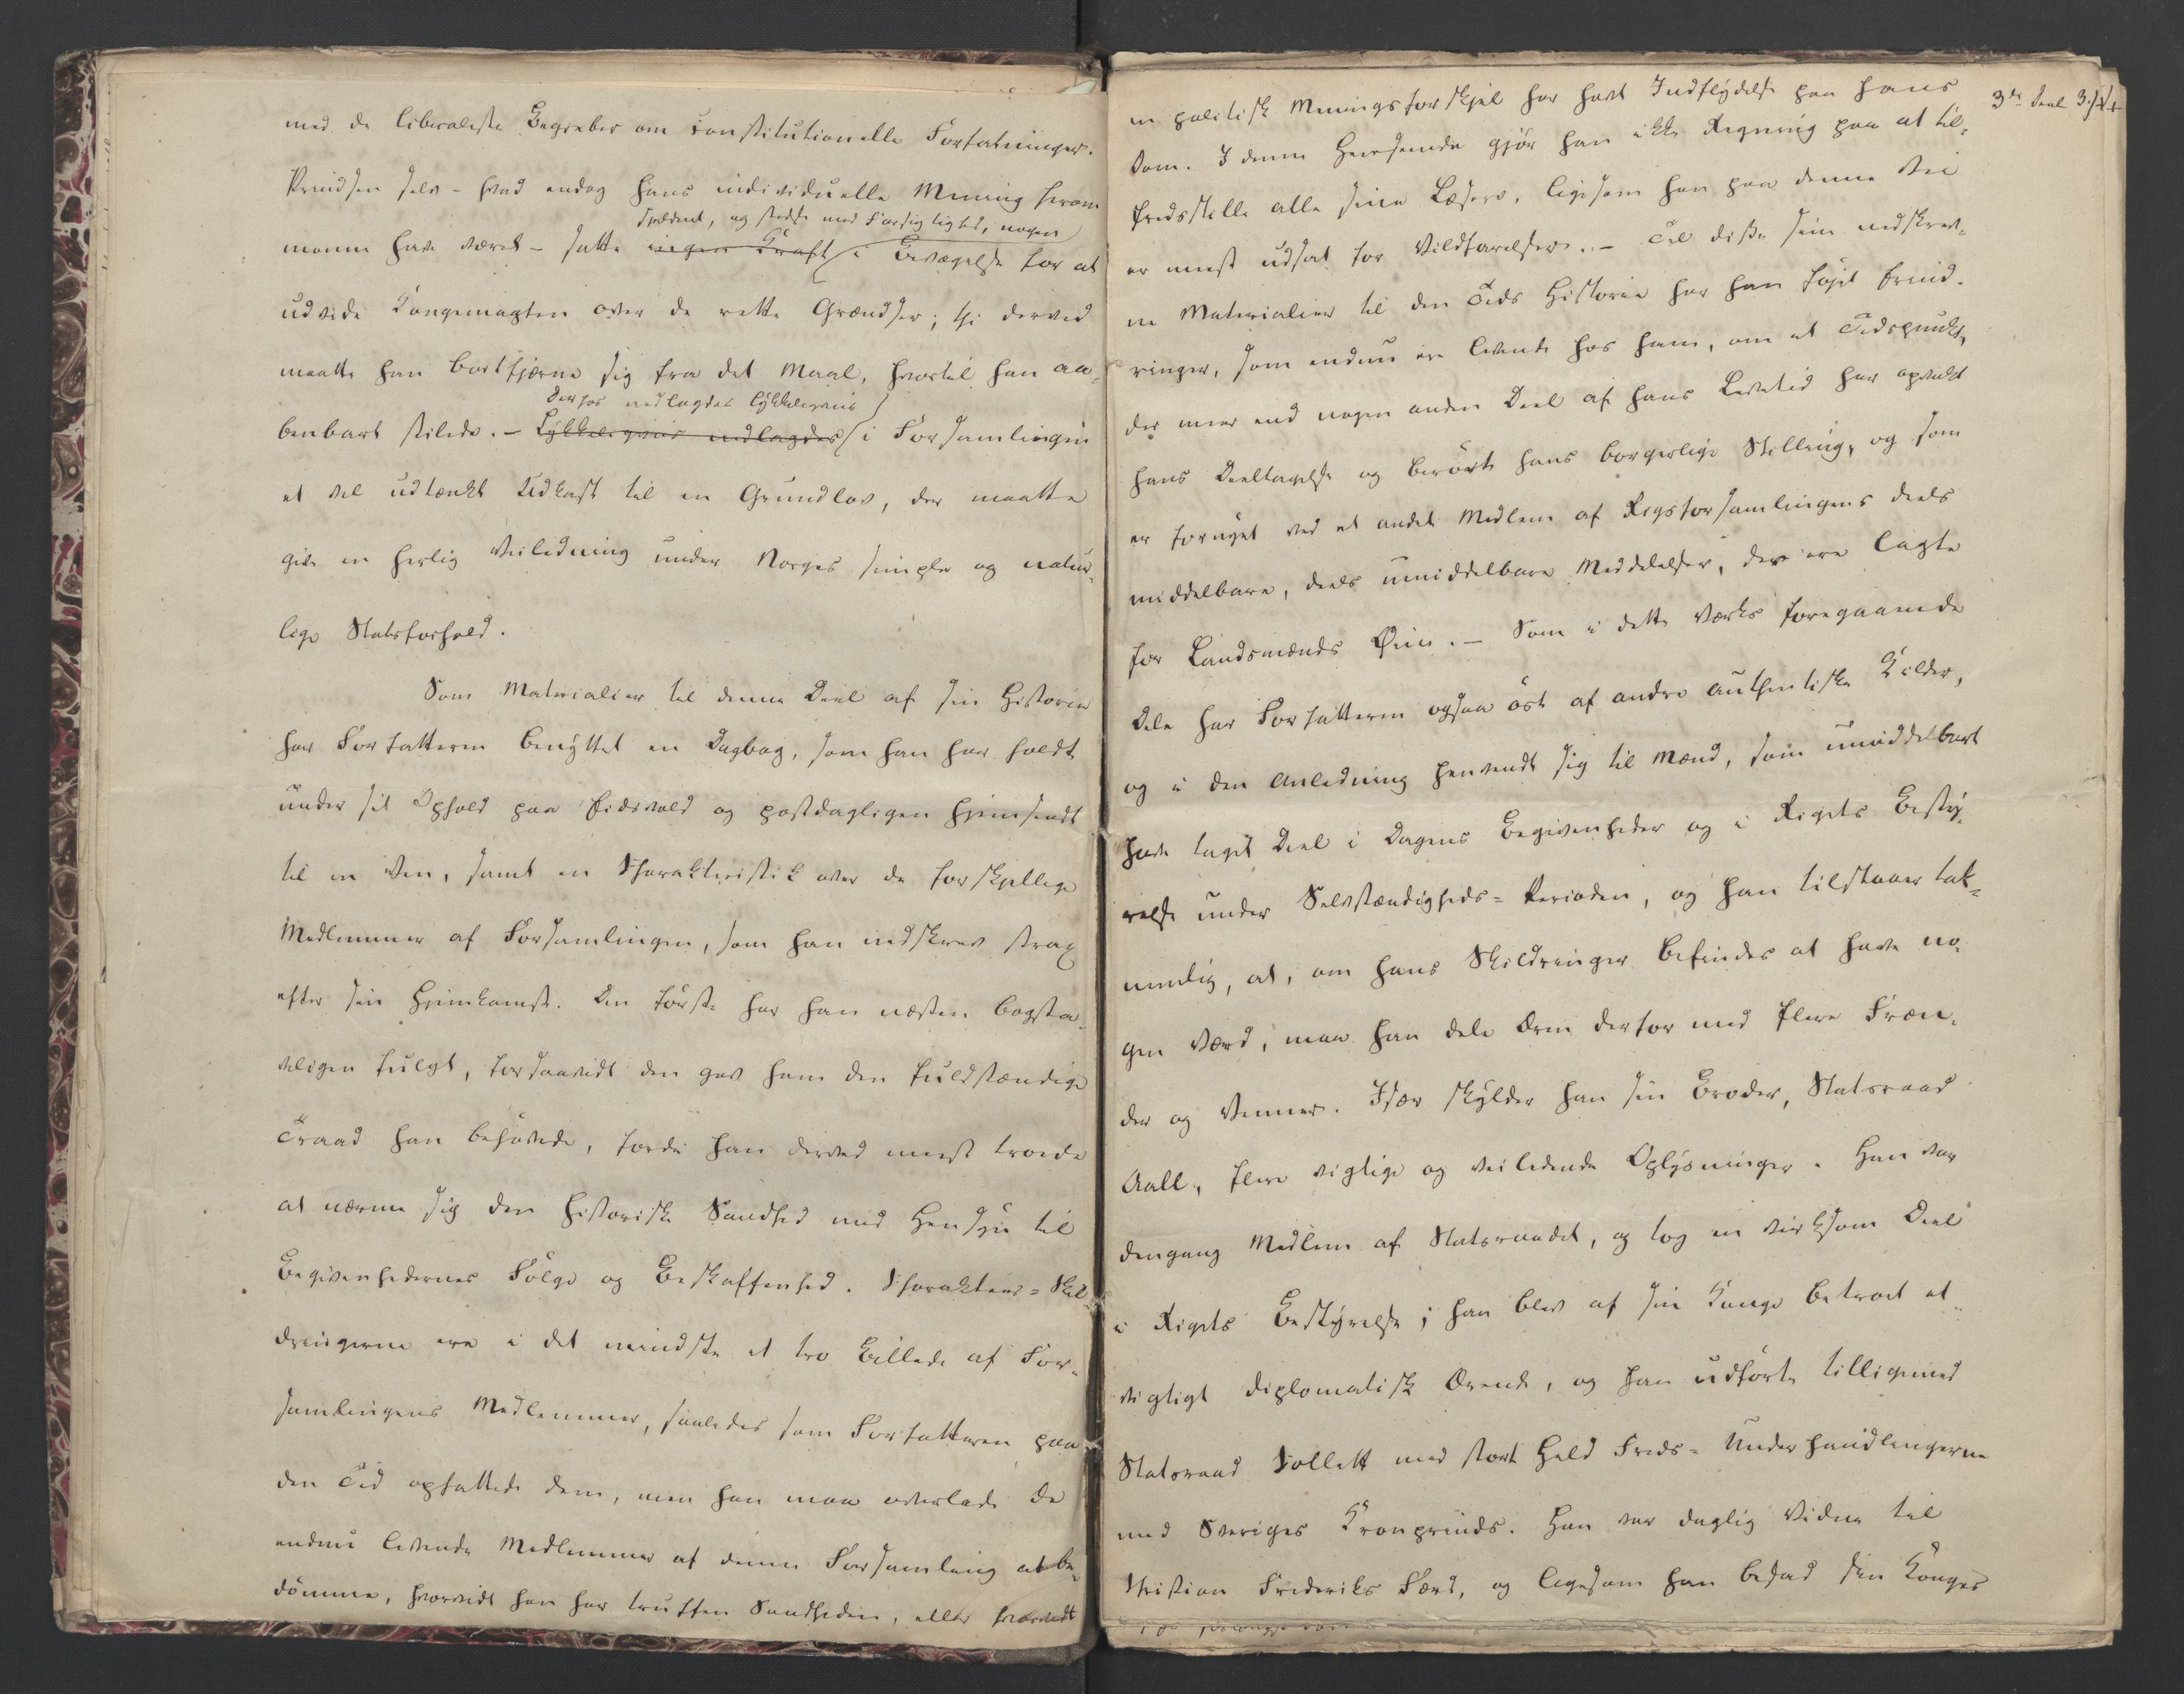 med de liberaleste Begreber om constitutionelle Forfatninger.
Prindsen selv - hvad endog hans individuelle Mening herom
sjeldent, og stedse med Forsigtighed, nogen
monne have været - satte ingen Kraft i Bevægelse for at
udvide Kongemagten over de rette Grændser; thi derved
maatte han bortfjerne sig fra det Maal, hvortil han aa-
Derhos nedlagdes lykkeligviis
benbart stilede. - Lykkeligviis nedlagdes i Forsamlingen
et vel udtænkt Udkast til en Grundlov, der maatte
give en herlig Veiledning under Norges simple og natur-
lige Statsforhold.
Som Materialier til denne Deel af sin Historie
har Forfatteren benyttet en Dagbog, som han har holdt
under sit Ophold paa Eidsvold og postdagligen hjemsendt
til en Ven, samt en Charakteristik over de forskjellige
Medlemmer af Forsamlingen, som han nedskrev strax
efter sin Hjemkomst. Den første har han næsten bogsta-
veligen fulgt, forsaavidt den gav ham den fuldstændige
Traad han behøvede, fordi han derved meest troede
at nærme sig den historiske Sandhed med Hensyn til
Begivenhedernes Følge og Beskaffenhed. Charakteer-Skil-
dringerne ere i det mindste et tro Billede af For-
samlingens Medlemmer, saaledes som Forfatteren paa
den Tid opfattede dem, men han maa overlade de
endnu levende Medlemmer af denne Forsamling at be-
dømme, hvorvidt han har truffen Sandheden, eller hvorvidt
3die Deel 3. Heft
en politisk Meningsforskjel har havt Indflydelse paa hans
Dom. I denne Henseende gjør han ikke Regning paa at til-
fredsstille alle sine Læsere, ligesom han paa denne Vei
er meest udsat for Vildfarelser. - Til disse sine nedskrev-
ne Materialier til den Tids Historie har han føjet Erind-
ringer, som endnu ere levende hos ham, om et Tidspunkt,
der meer end nogen anden Deel af hans Levetid har opvakt
hans Deeltagelse og berørt hans borgerlige Stilling, og som
er fornyet ved et andet Medlem af Rigsforsamlingens deels
middelbare, deels umiddelbare Meddelelser, der ere lagte
for Landsmænds Øine. - Som i dette Værks foregaaende
Dele har Forfatteren ogsaa øst af andre authentiske Kilder,
og i den Anledning henvendt sig til Mænd, som umiddelbart
have taget Deel i Dagens Begivenheder og i Rigets Besty-
relse under Selvstændigheds-Perioden, og han tilstaaer tak-
nemlig, at, om hans Skildringer befindes at have no-
gen Værd, maa han dele Æren derfor med flere Fræn-
der og Venner. Især skylder han sin Broder, Statsraad
Aall, flere vigtige og veiledende Oplysninger. Han var
dengang Medlem af Statsraadet, og tog en virksom Deel
i Rigets Bestyrelse; han blev af sin Konge betroet et
vigtigt diplomatisk Ærende, og han udførte tilligemed
Statsraad Collett med stort Held Freds-Underhandlingerne
med Sveriges Kronprinds. Han var daglig Vidne til
Christian Frederiks Færd, og ligesom han besad sin Konges